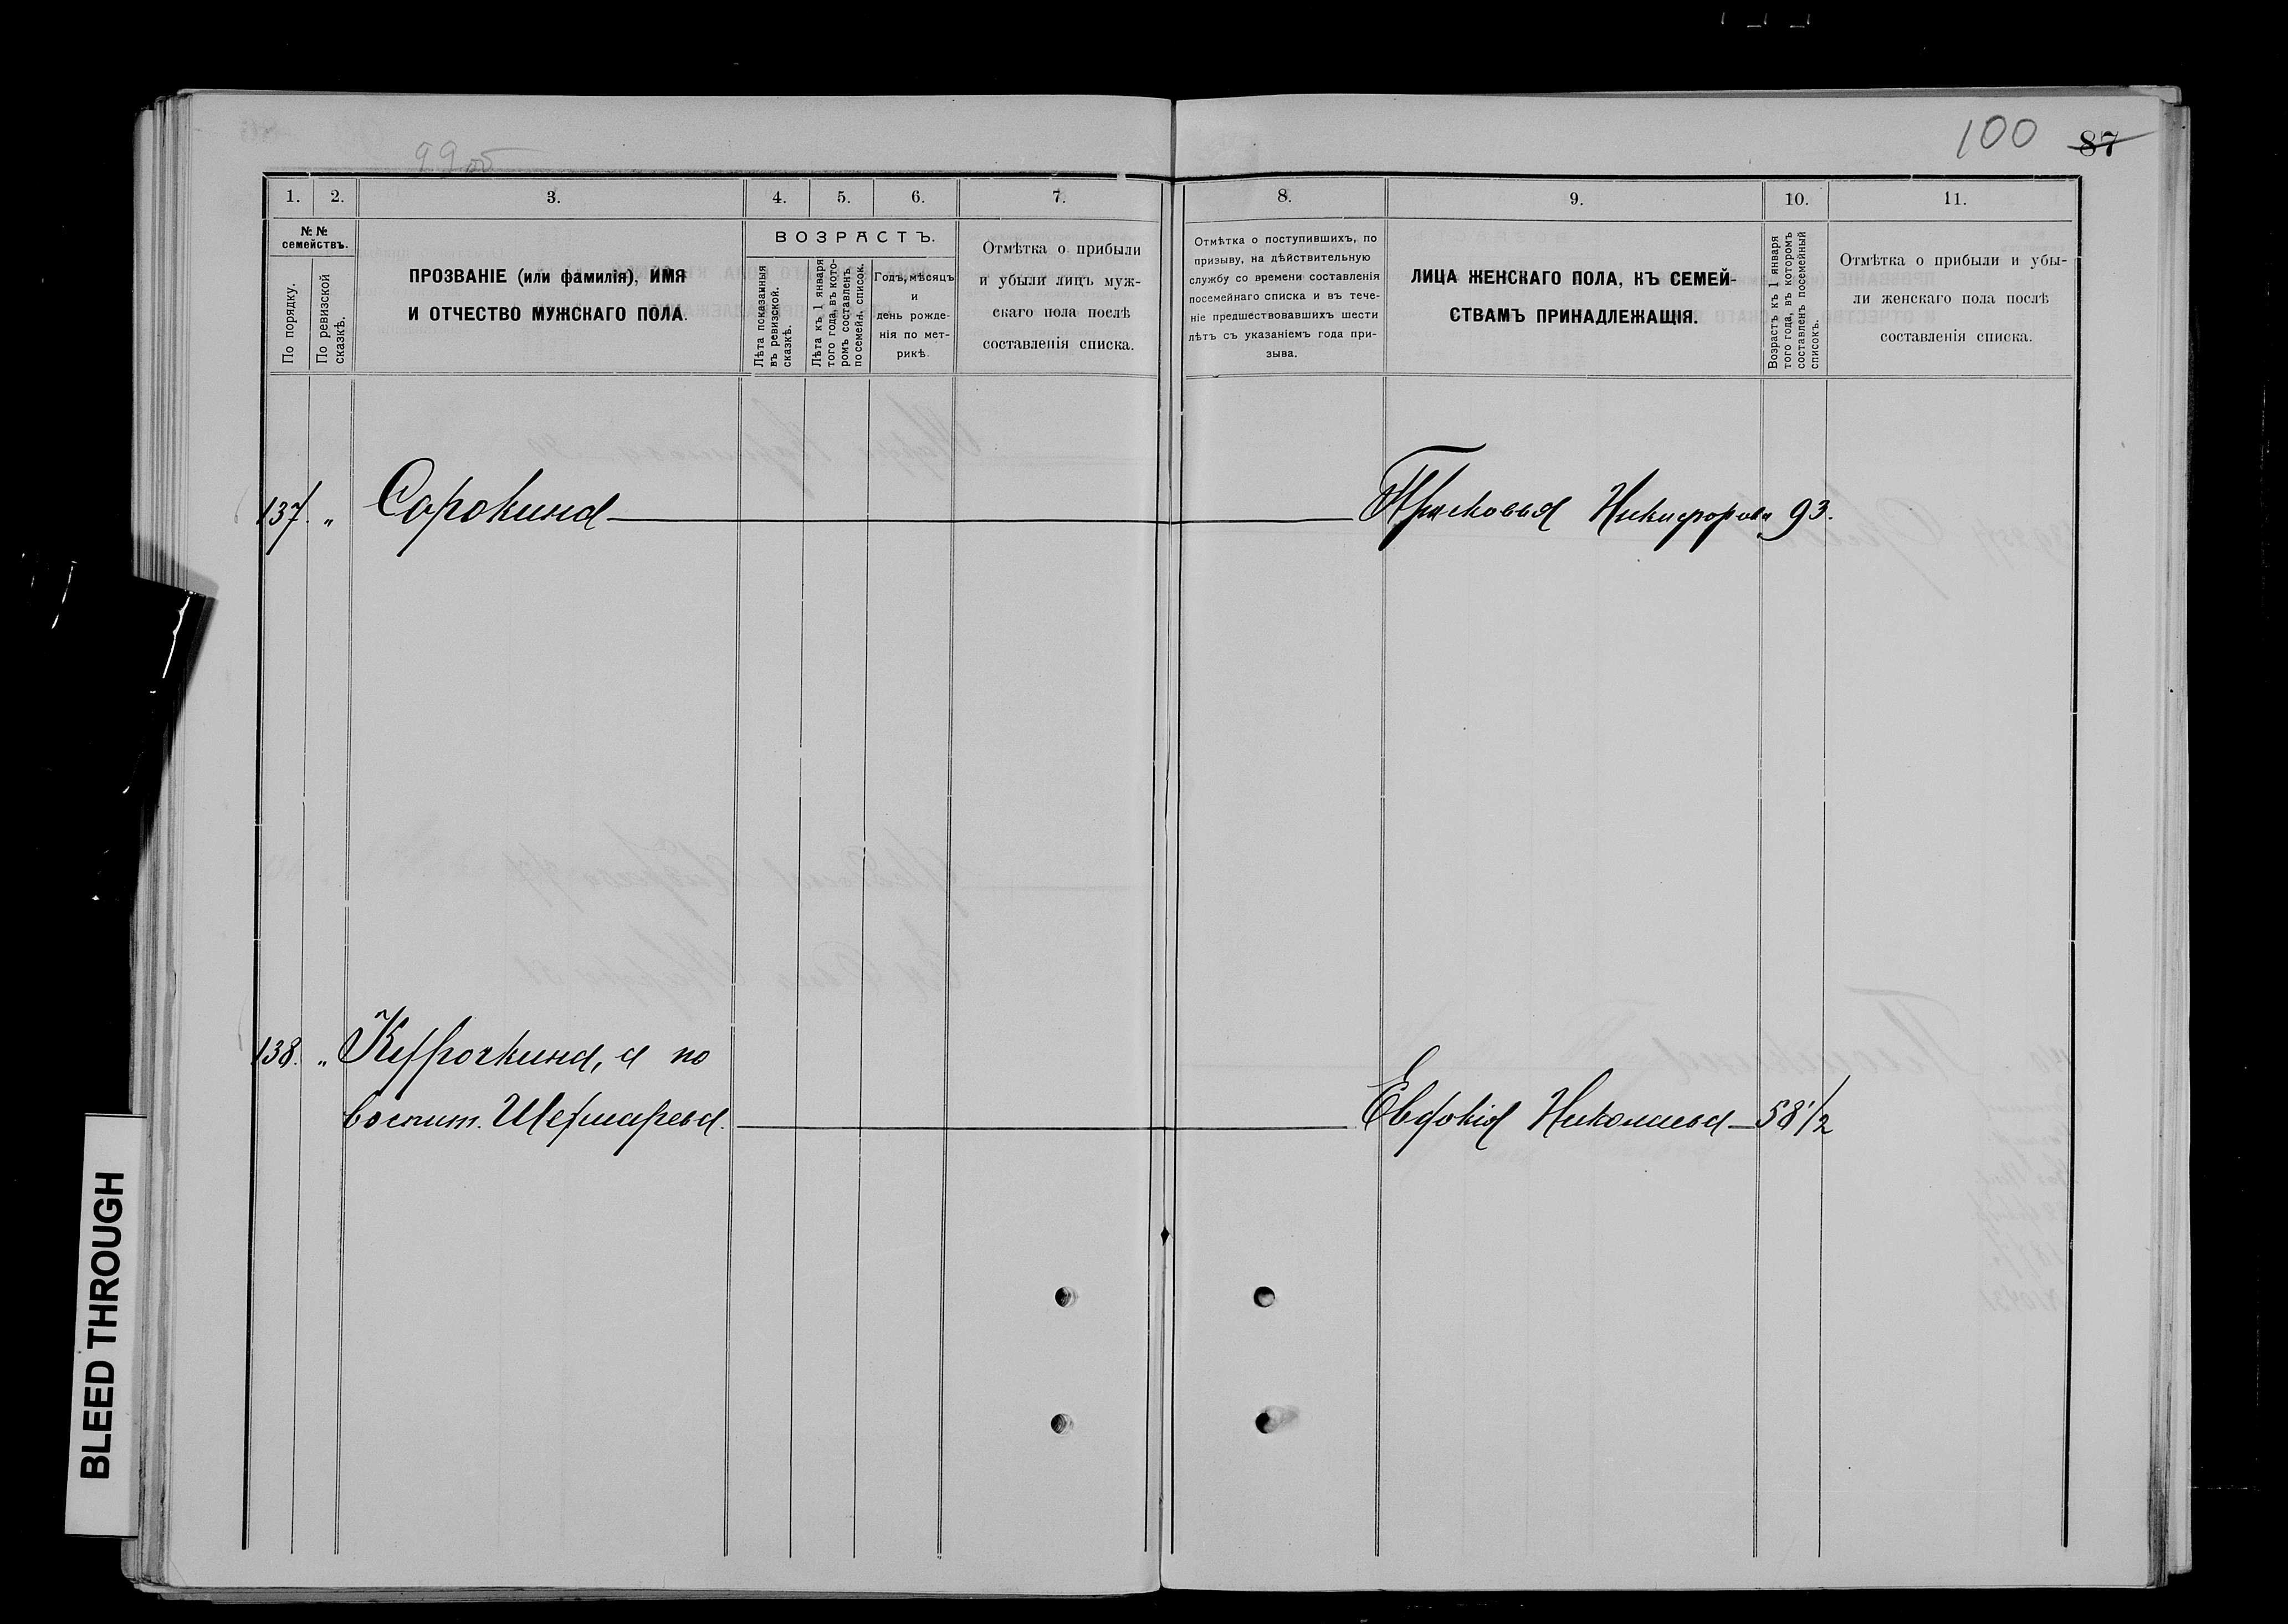 99об
100 87
1. 2. 3. 4. 5. 6. 7. 8. 9. 10. 11.
№ №
семействъ.
По порядку.
По ревизской
сказкѣ.
ПРОЗВАНІЕ (или фамилія), ИМЯ
И ОТЧЕСТВО МУЖСКАГО ПОЛА.
ВОЗРАСТЪ.
Лѣта показанныя
въ ревизской.
сказкѣ.
Лѣта къ 1 января
того года, въ кото-
ромъ составленъ
посемейн. список.
Годъ, мѣсяцъ
и
день рожде-
нія по мет-
рикѣ.
Отмѣтка о прибыли
и убыли лицъ муж-
скаго пола послѣ
составленія списка.
Отмѣтка о поступившихъ, по
призыву, на дѣйствительную
службу со времени составленія
посемейнаго списка и въ тече-
ніе предшествовавшихъ шести
лѣтъ съ указаніемъ года при-
зыва.
ЛИЦА ЖЕНСКАГО ПОЛА, КЪ СЕМЕЙ-
СТВАМЪ ПРИНАДЛЕЖАЩІЯ.
Возрастъ къ 1 января
того года, въ которомъ
составленъ посемейный
списокъ.
Отмѣтка о прибыли и убы-
ли женскаго пола послѣ
составленія списка.
137. „ Сорокина Прасковья Никифорова 93.
138. „ Курочкина, а по
воспит. Евдокія Николаева 58 1/2
BLEED THROUGH